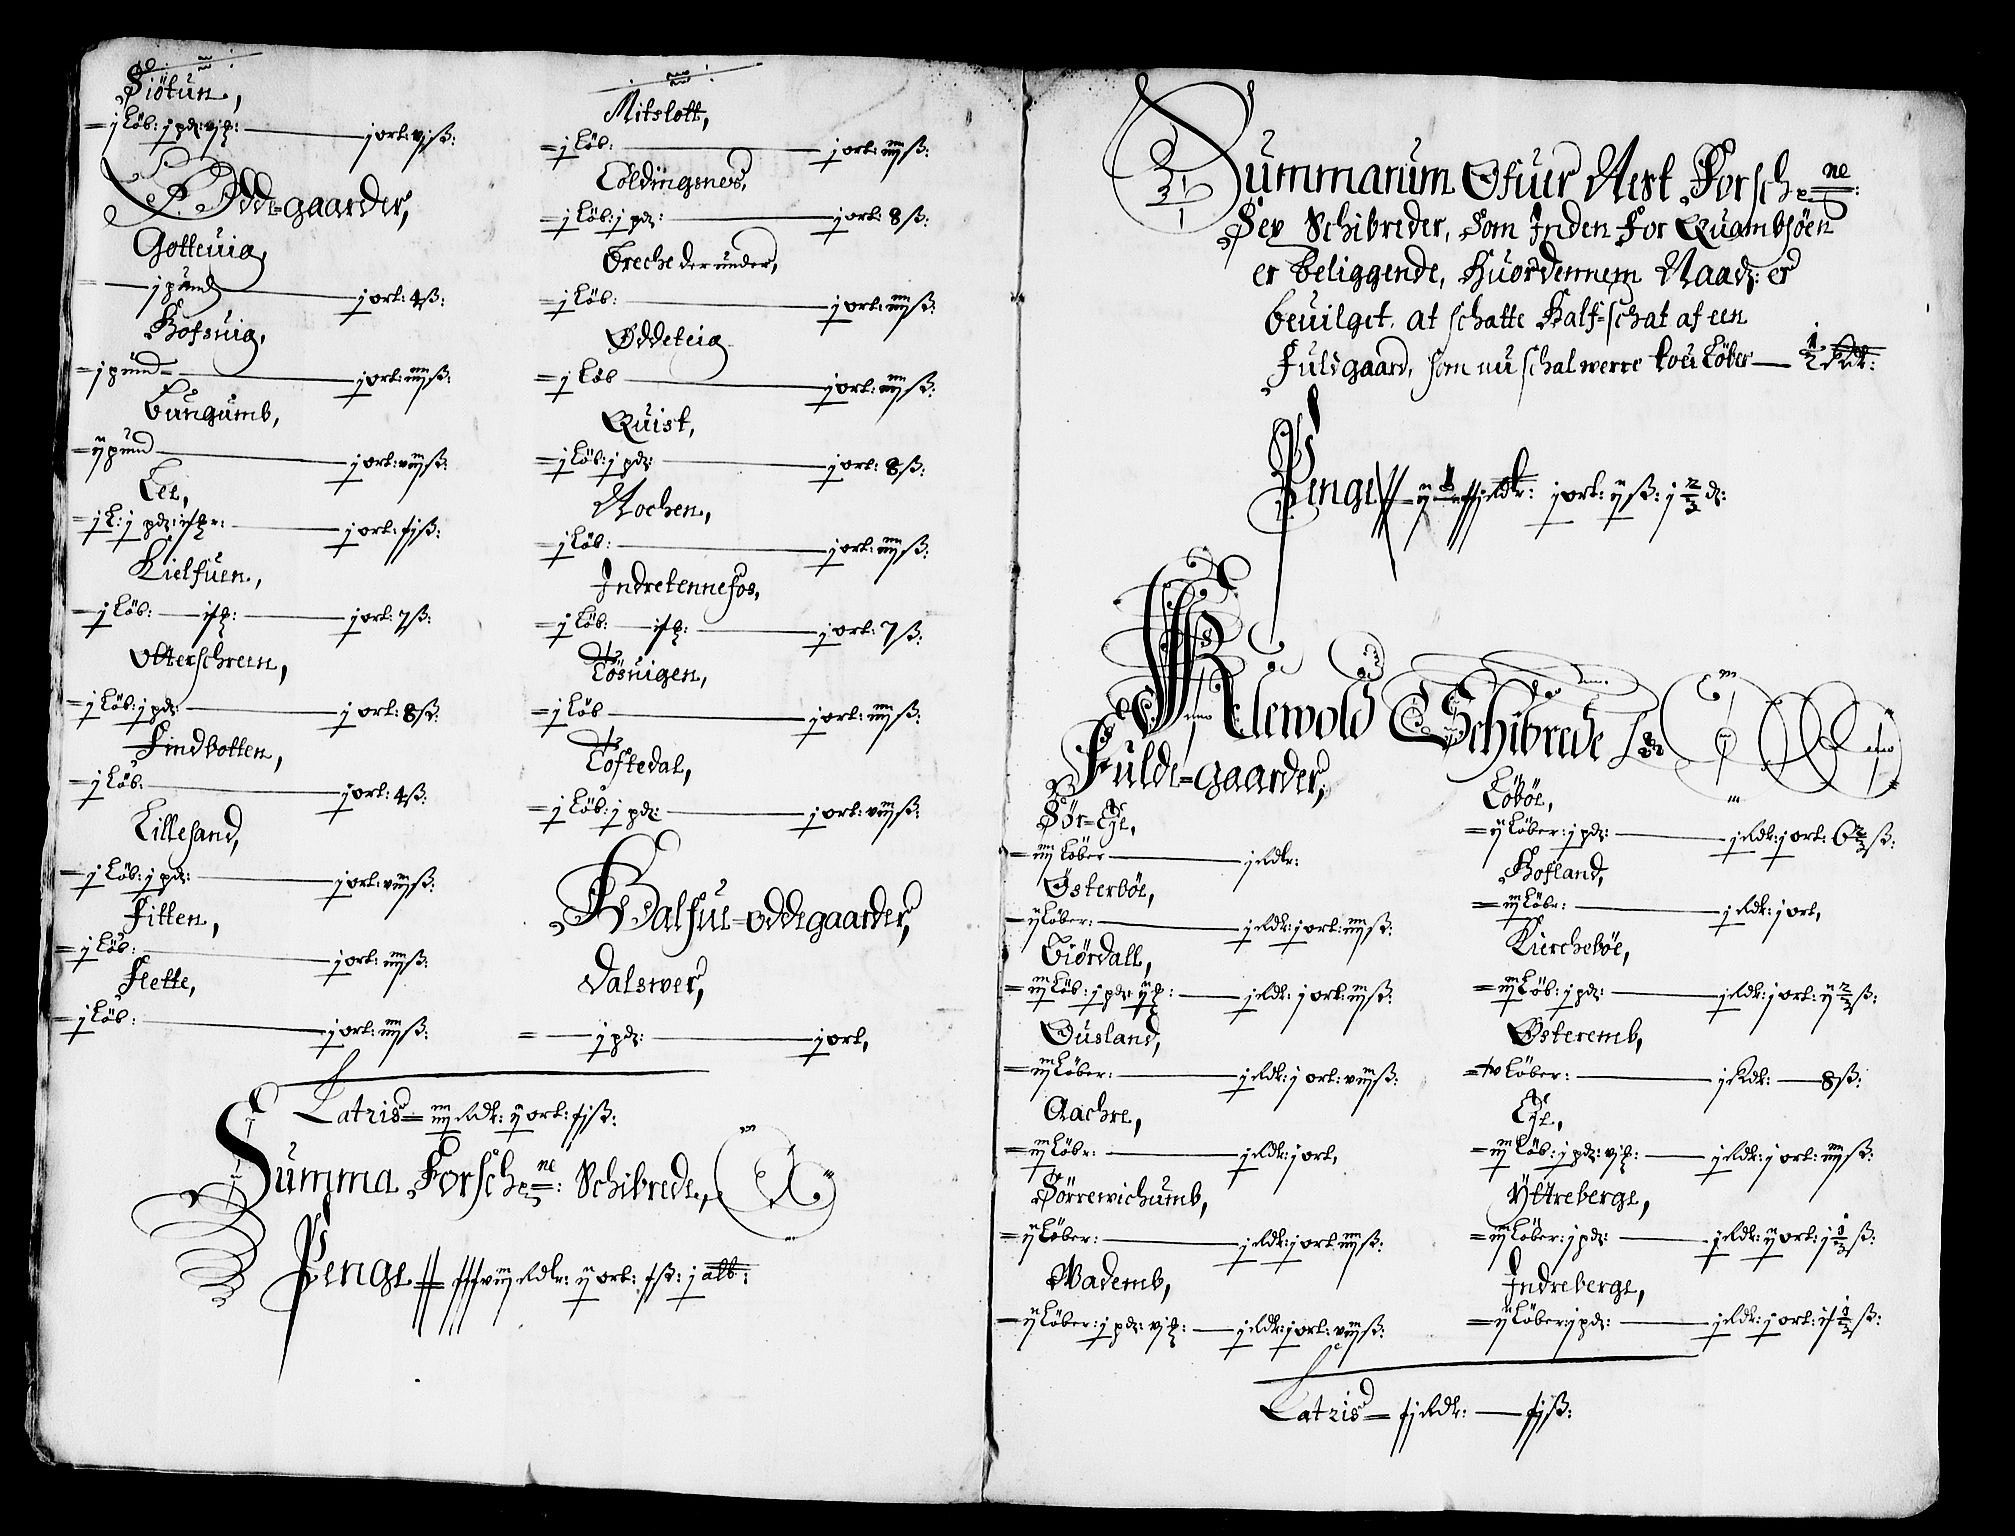 Siötun,
= j Löb: j pd: vj ℔: — j ort: vj ß:
Ødde-gaarder,
Gotteuig,
— j pund — j ort: 4 ß:
Hofsuig,
= j pund = — j ort: iiij ß:
Bungumb,
= ij pund — j ort: viij ß:
Lee,
= j L: j pd: — j ort:
Kielfuen,
= j Löb: — — j ort: 7 ß:
Otterschrein,
= j Löb: j pd: — j ort: 8 ß:
Findbotten,
= j Löb: — j ort: 4 ß:
Lillesand,
= j Löb: j pd: — j ort: viij ß:
Fitten,
= j Löb: — j ort: iiij ß:
Flette,
= j Löb: — j ort: iiij ß:
Mitslott,
= j Löb: — j ort: iiij ß:
Coldingsnes,
= j Löb: j pd: — j ort: 8 ß:
Breche der under,
= j Löb: — j ort: iiij ß:
Øddeteig
= j Löb — j ort: iiij ß:
Quist,
= j Löb: j pd: — j ort: 8 ß:
Nochen,
= j Löb: — j ort: iiij ß:
Indretennefos,
= j Löb: — — j ort: 7 ß:
Tösuigen,
= j Löb — j ort: iiij ß:
Töftedal,
= j Löb: j pd: — j ort: viij ß:
Halfue-øddegaarder,
Dalswer,
= — j pd: — j ort,
Latris = iiij Rdr: ij ort:
Summa Forsch:ne: Schibrede,
Penge ij ort: j alb:
Summarum Ofuer Nest Forsch:ne:
Sex Schibreder, Som Inden for Quambsöen
er beliggende, Huordennem Naad: er
beuilget, at schatte Half-schat af een
Fuldgaard, som nu schal werre tou Löber — ½ Rdr:
Penge j ort: ij ß: j ⅔ d:
Klewold Schibrede
Fulde-gaarder,
Sör-Eje,
= iiij Löber — j Rdr:
Østerböe,
= ij Löber: — j Rdr: j ort: iiij ß:
Giördall,
= iij Löb: j pd: ij ℔: — j Rdr: j ort: iiij ß:
Ousland,
= iij Löber: — j Rdr: j ort: viij ß:
Aachre,
= iij Löbr: — j Rdr: j ort,
Sörrewichumb,
= ij Löber: — j Rdr: j ort iiij ß:
Wademb,
= ij Löber: j pd: vj ℔: — j Rdr: j ort: viij ß:
Löböe,
= ij Löber: j pd: — j Rdr: j ort: 6⅔ ß:
Hofland,
= iij Löbr: — j Rdr: j ort,
Kiercheböe,
= iij Löb: j pd: — j Rdr: j ort: ij ⅔ ß:
Østeremb,
= tv Löber: — j Rdr: — 8 ß:
Eje,
= iij Löb: j pd: vj ℔: — j Rdr: j ort: iiij ß:
Yttreberge,
= iij Löber: j pd: — j Rdr: ij ort: j ⅓ ß:
Indreberge,
= ij Löber: j pd: — j Rdr: j ort:
Latris =